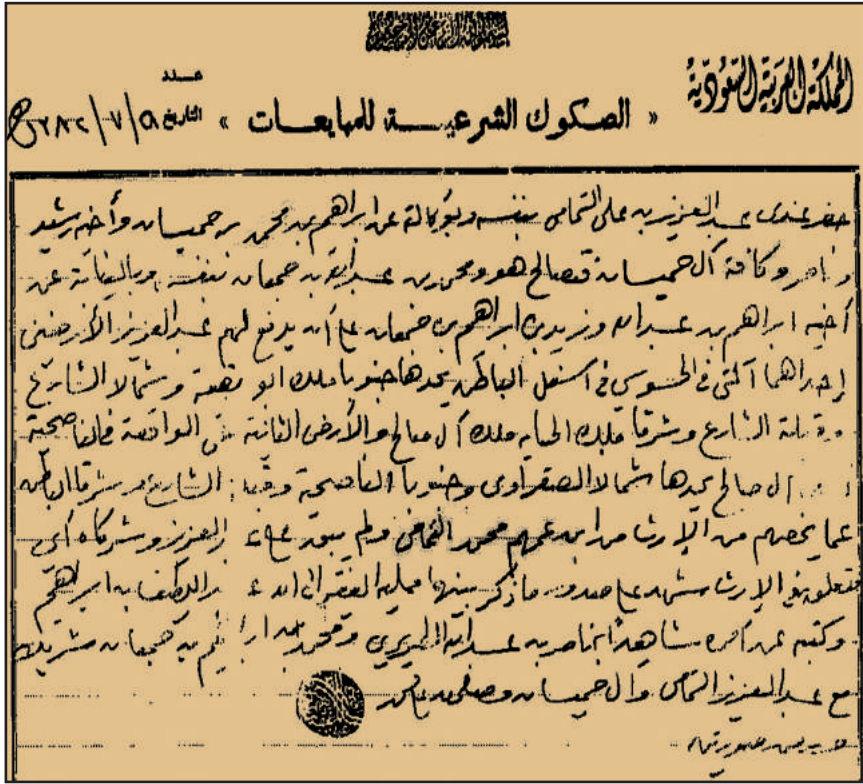 بسم الله الرحمن الرحيم
المملكة العربية السعودية
عدد
« الصكوك الشرعية للمبايعات » التاريخ ١٣٨٢/٧/٥هـ
حضر عندي عبد العزيز بن علي الشماس بنفسه وبوكالة عن ابراهيم بن محمد بن حميسان وأخيه رشيد
وناصر وكافة آل حميسان فتصالح هو ومحمد بن عبد الله بن ضبعان بنفسه وبالنيابة عن
أخيه ابراهيم بن عبد الله وزيد بن ابراهيم بن ضبعان على أن يدفع لهم عبد العزيز الأرضين
إحداهما التي في الحسوس في أسفل الباطن يحدها جنوبا ملك ابو وشمالا الشارع
وقبلة الشارع وشرقا ملك ملك آل صالح والأرض الثانية هي الواقعة في الناصحة
آل صالح يحدها شمالا الصقراوي وجنوبا الناصحة وقبلة الشارع وشرقا الباطن
عما يخصهم من الإرث من ابن عمهم محمد الشماس ولم يبق على عبد العزيز وشركاه أي
تعلق في الإرث شهد على صدور ما ذكر بينهما ممليه الفقير الى الله عبد اللطيف بن ابراهيم
وكتبه عن أمره شاهدا به ناصر بن عبد الله ومحمد بن ابراهيم بن ضبعان شريك
مع عبد العزيز الشماس وآل حميسان وصلى الله على محمد